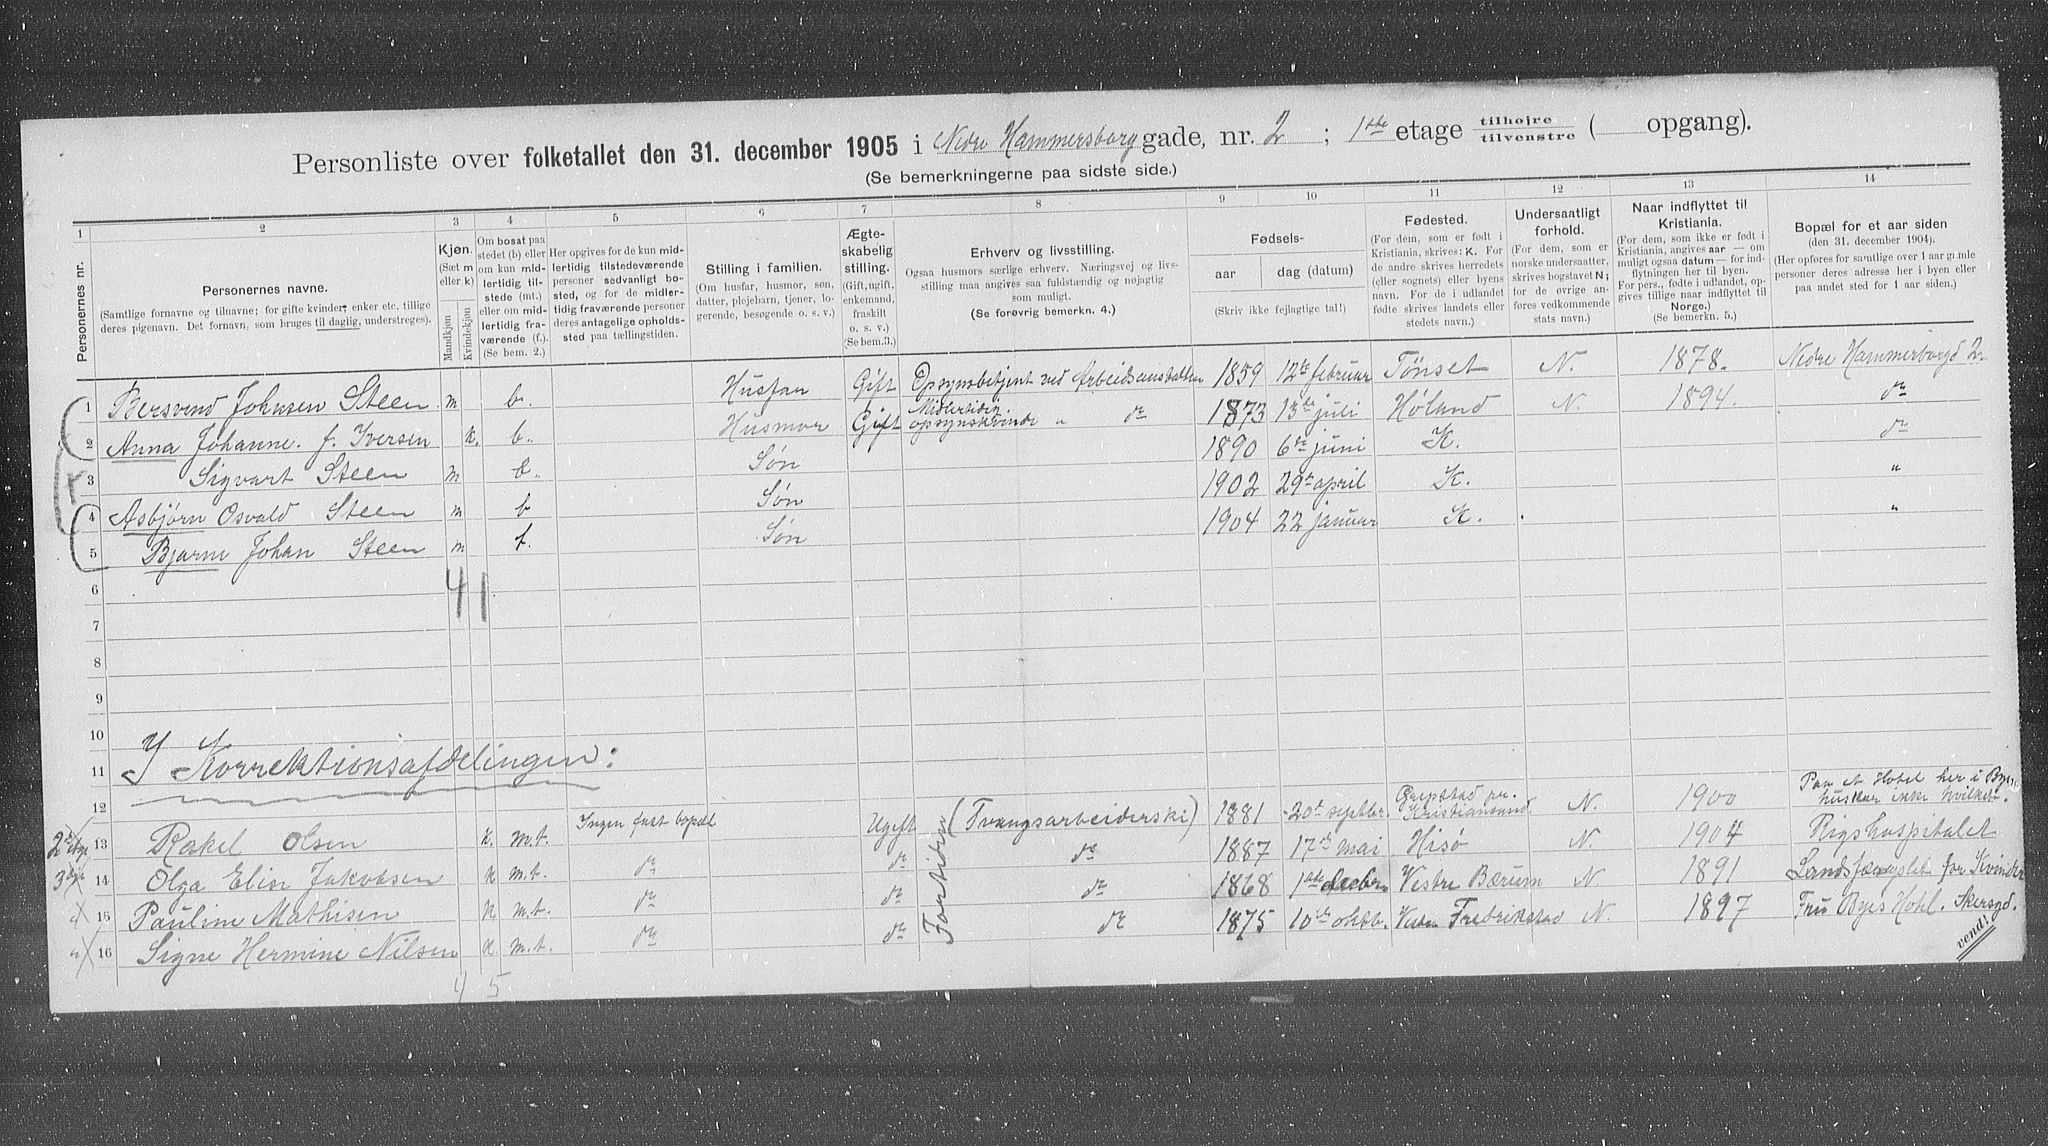 Personliste over folketallet den 31. december 1905 i Nedre Hammersborg gade, nr. 2 ; 1ste etage tilhøjre tilvenstre ( opgang).
(Se bemerkningerne paa sidste side.)
1 2 3 4 5 6 7 8 9 10 11 12 13 14
Personernes nr.
Personernes navne.
(Samtlige fornavne og tilnavne; for gifte kvinder, enker etc. tillige deres pigenavn. Det fornavn, som bruges til daglig, understreges).
Kjøn.
(Sæt m eller k)
Mandkjøn
Kvindekjøn
Om bosat paa stedet (b) eller om kun midlertidig tilstede (mt.) eller om midlertidig fraværende (f.).
(Se bem. 2.)
Her opgives for de kun midlertidig tilstedeværende personer sedvanligt bosted, og for de midlertidig fraværende personer deres antagelige opholdssted paa tællingstiden.
Stilling i familien.
(Om husfar, husmor, søn, datter, plejebarn, tjener, logerende, besøgende o. s. v.)
Ægteskabelig stilling.
(Gift, ugift, enkemand, fraskilt o. s. v.)
(Se bem.3.)
Erhverv og livsstilling.
Ogsaa husmors særlige erhverv. Næringsvej og livsstilling maa angives saa fuldstændig og nøjagtig som muligt.
(Se forøvrig bemerkn. 4.)
Fødsels-
aar dag (datum)
(Skriv ikke fejlagtige tal!)
Fødested.
(For dem, som er født i Kristiania, skrives: K. For de andre skrives herredets (eller sognets) eller byens navn. For de i udlandet fødte skrives landets eller stedets navn.)
Undersaatligt forhold.
(For dem, som er norske undersaatter, skrives bogstavet N; for de øvrige anføres vedkommende stats navn.)
Naar indflyttet til Kristiania.
(For dem, som ikke er født i Kristiania, angives aar — om muligt ogsaa datum — for indflytningen her til byen. For pers., fødte i udlandet, opgives tillige naar indflyttet til Norge.)
(Se bemerkn. 5.)
Bopæl for et aar siden
(den 31. december 1904).
(Her opføres for samtlige over 1 aar gamle personer deres adresse her i byen eller paa andet sted for 1 aar siden.)
1 Bersvend Johnsen Steen m b. Husfar Gift Opsynsbetjent ved Arbeidsanstalten 1859 12te februar Tønset N. 1878. Nedre Hammerborgd 2
2 Anna Johanne. f. Iversen k. b. Husmor Gift Midlertidig opsynskvinde " do 1873 13de juli Høland N. 1894. do
3 Sigvart Steen m b. Søn 1890 6te juni K. do
4 Asbjørn Osvald Steen m b Søn 1902 29de april K. "
5 Bjarne Johan Steen m f. Søn 1904 22 januar K. "
6 4 1
7
8
9
10
11 I Korrektionsafdelingen:
12
2den Etage 13 Rakel Olsen k. m.t. Ingen fast bopæl Ugift Fortiden (Tvangsarbeiderski) 1881 20de septbr. Grepstad pr. Kristiansand N. 1900 Paa et Hotel her i Byen husker ikke hvilket.
3die 14 Olga Elise Jakobsen k m.t. do do do 1887 17de mai Hisø N. 1904 Rigshospitalet
" 15 Pauline Mathisen k m.t. do do do 1868 1ste decbr Vestre Bærum N. 1891 Landsfængslet for Kvinder
" 16 Signe Hermine Nilsen k. m.t. do do do 1875 10de oktb. Vestre Fredrikstad N. 1897 Fru Byes Hotl. Skersgd.
4 5
vend!